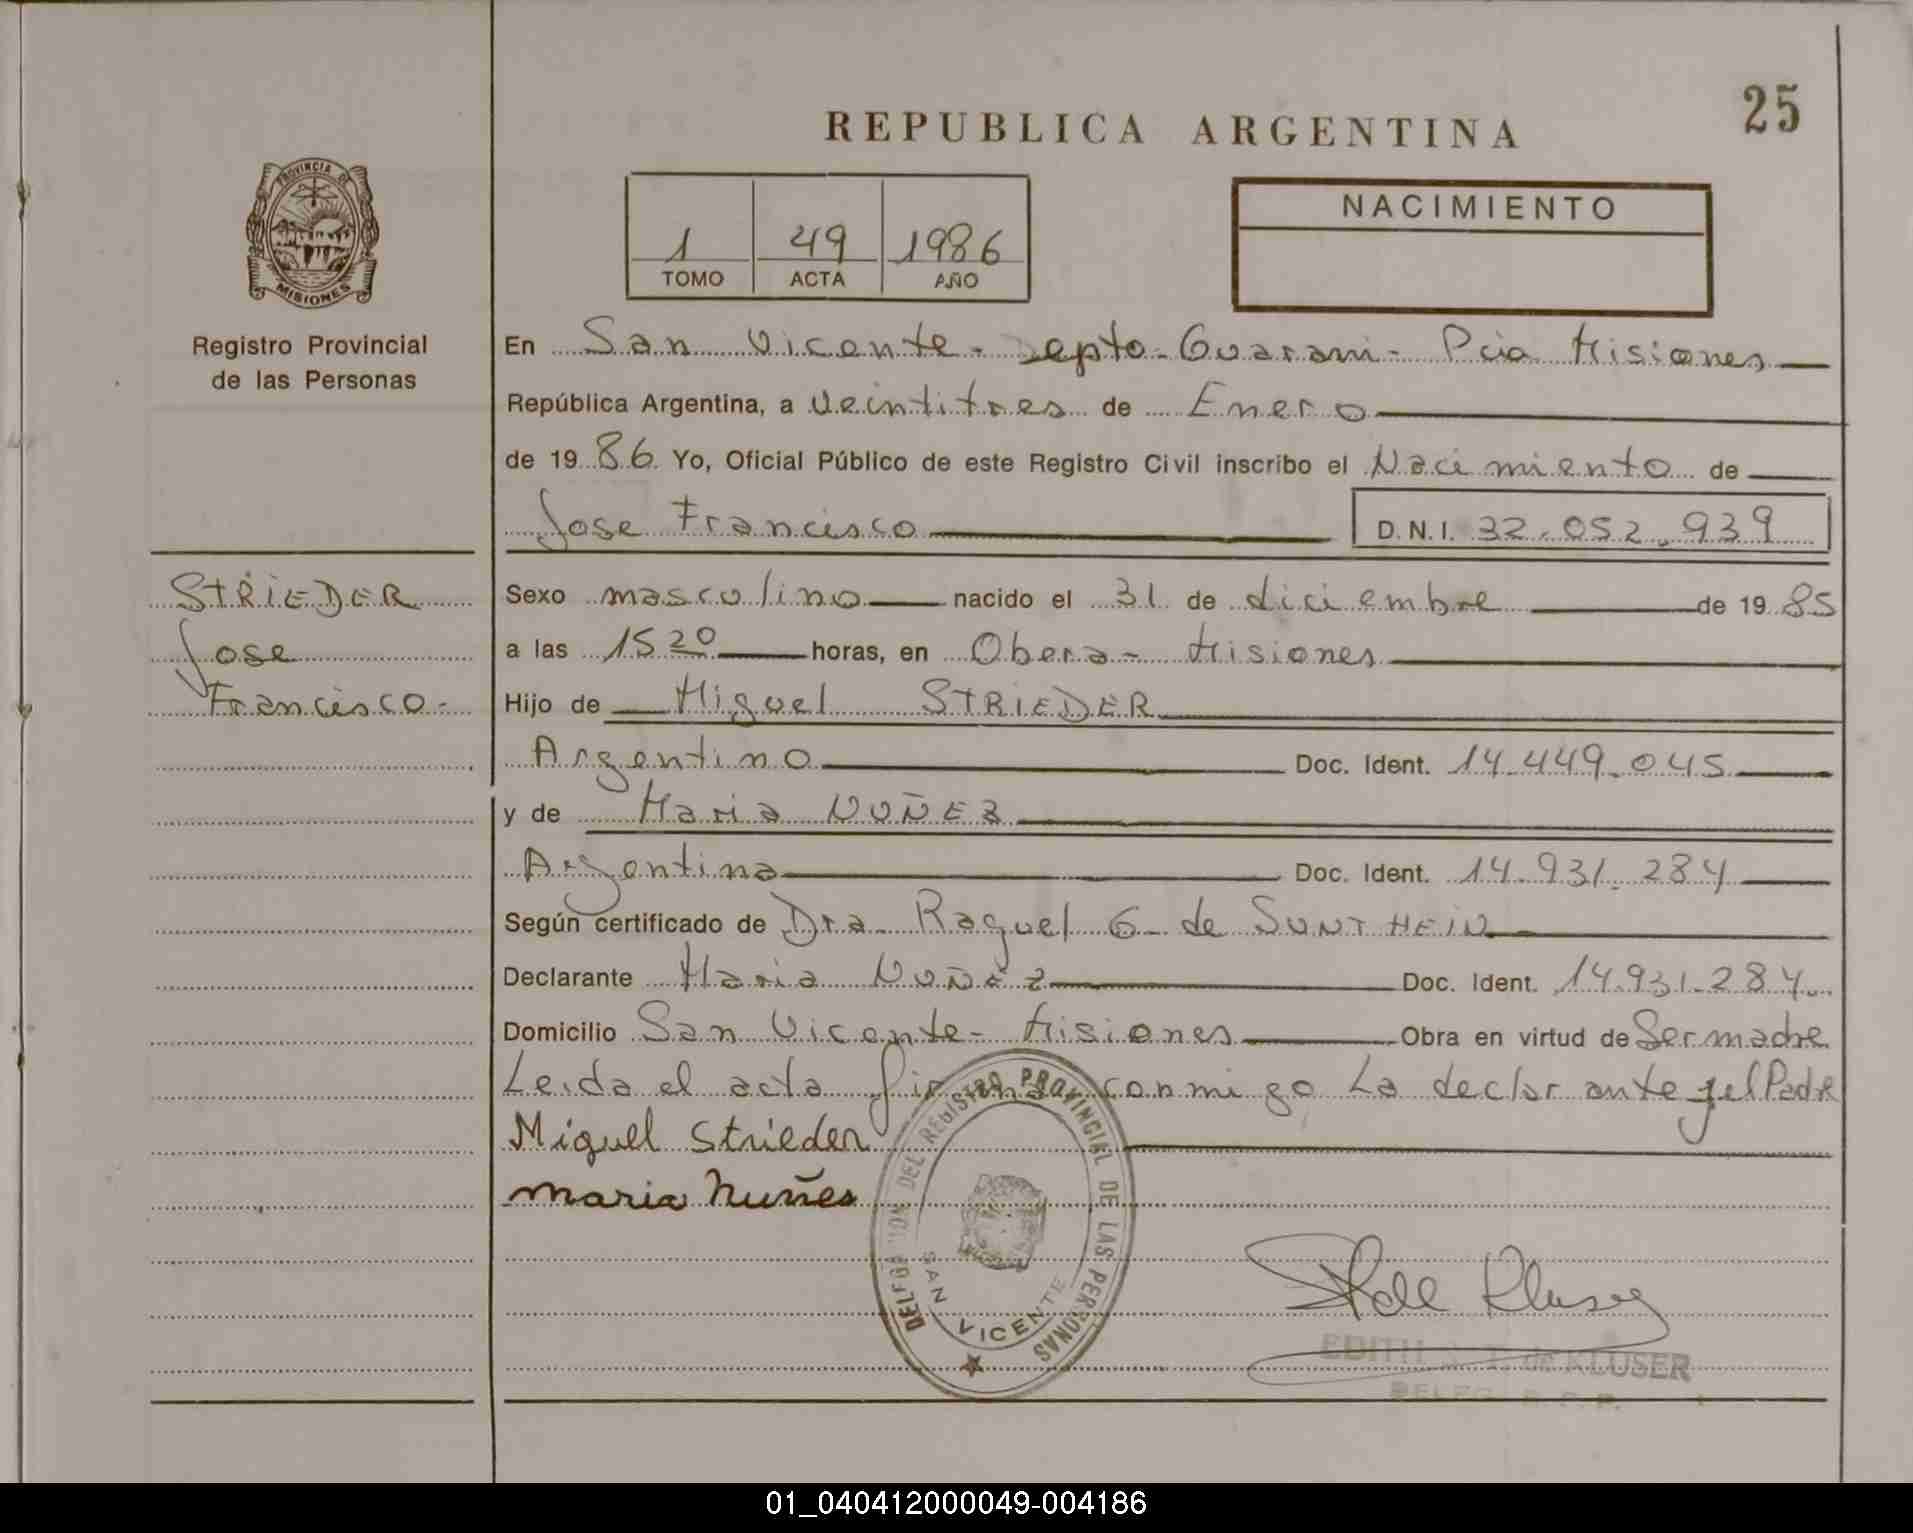 25
REPUBLICA ARGENTINA
PROVINCIA DE
MISIONES
Registro Provincial
de las Personas
1 49 1986
TOMO ACTA AÑO
NACIMIENTO
En San Vicente - Depto- Guarani - Pcia Misiones
República Argentina, a Veintitres de Enero
de 1986 Yo, Oficial Público de este Registro Civil inscribo el Nacimiento de
Jose Francisco D.N.I. 32.052.939
STRIEDER
Jose
Francisco-
Sexo masculino nacido el 31 de diciembre de 1985
a las 15 20 horas, en Obera - Misiones
Hijo de Miguel STRIEDER
Argentino Doc. Ident. 14.449.045
y de Maria NUÑEZ
Argentina Doc. Ident. 14.931.284
Según certificado de Dra. Raquel G- de SUNTHEIN
Declarante Maria NUÑEZ Doc. Ident. 14.931.284
Domicilio San Vicente - Misiones Obra en virtud de Ser madre
Leida el acta firma conmigo La declarante y el Padre
Miguel Strieder
Maria Nuñes
DELEGACION DEL REGISTRO PROVINCIAL DE LAS PERSONAS
SAN VICENTE
de Kluser
EDITH de KLUSER
DELEG. R. P. P.
01_040412000049-004186